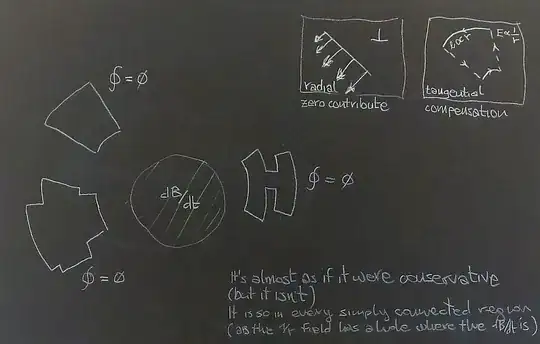 ∮ = ∅
⊥
radial
zero contribute
l ∝ r
E ∝ 1/r
tangential
compensation
dB/dt
∮ = ∅
∮ = ∅
It's almost as if it were conservative
(but it isn't)
It is so in every simply connected region
(as the 1/r field has a hole where the dB/dt is)